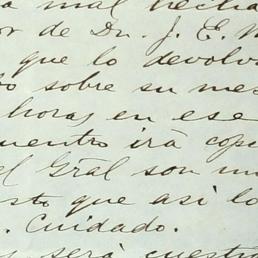 mal hecha
or de Dn. J. E.
que lo devolv
sobre su mes
horas en ese
uentro irá copi
el Gral son m
sto que así lo
. Cuidado.
será cuestio